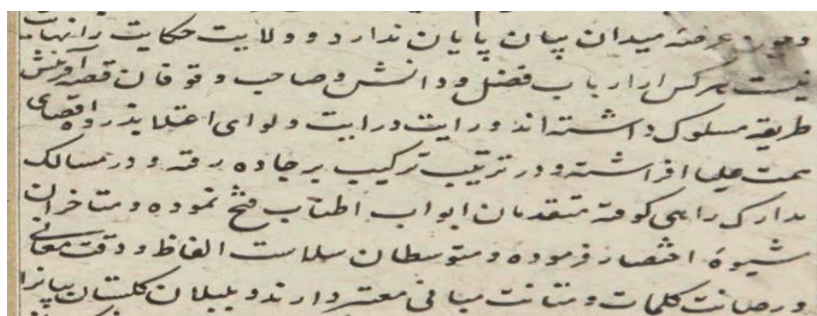 و چون عرصهٔ میدان بیان پایان ندارد و ولایت حکایت را نهایت
نیست هر کس از ارباب فضل و دانش و صاحب وقوفان قصه آفرینش
طریقه مسلوک داشته‌اند و رایت درایت و لوای اعتلا بذروه اقصای
همت علیا افراشته و در ترتیب ترکیب بر جاده رفته و در مسالک
مدارک راهی کوفته متقدمان ابواب اطناب فتح نموده و متاخران
شیوهٔ اختصار فرموده و متوسطان سلاست الفاظ و دقت معانی
و رصانت کلمات و متانت مبانی معتبر دارند و بلبلان گلستان بیانرا